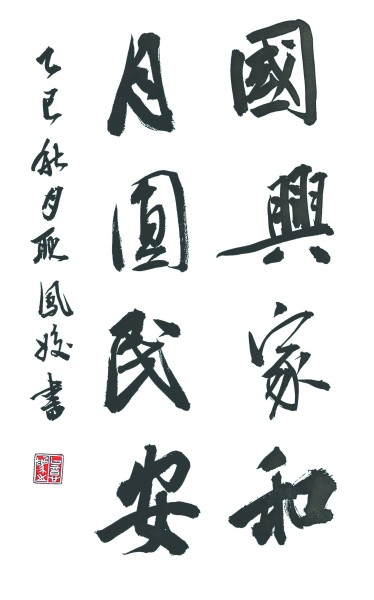 國興家和
月圓民安
乙巳秋月耿鳳姣書